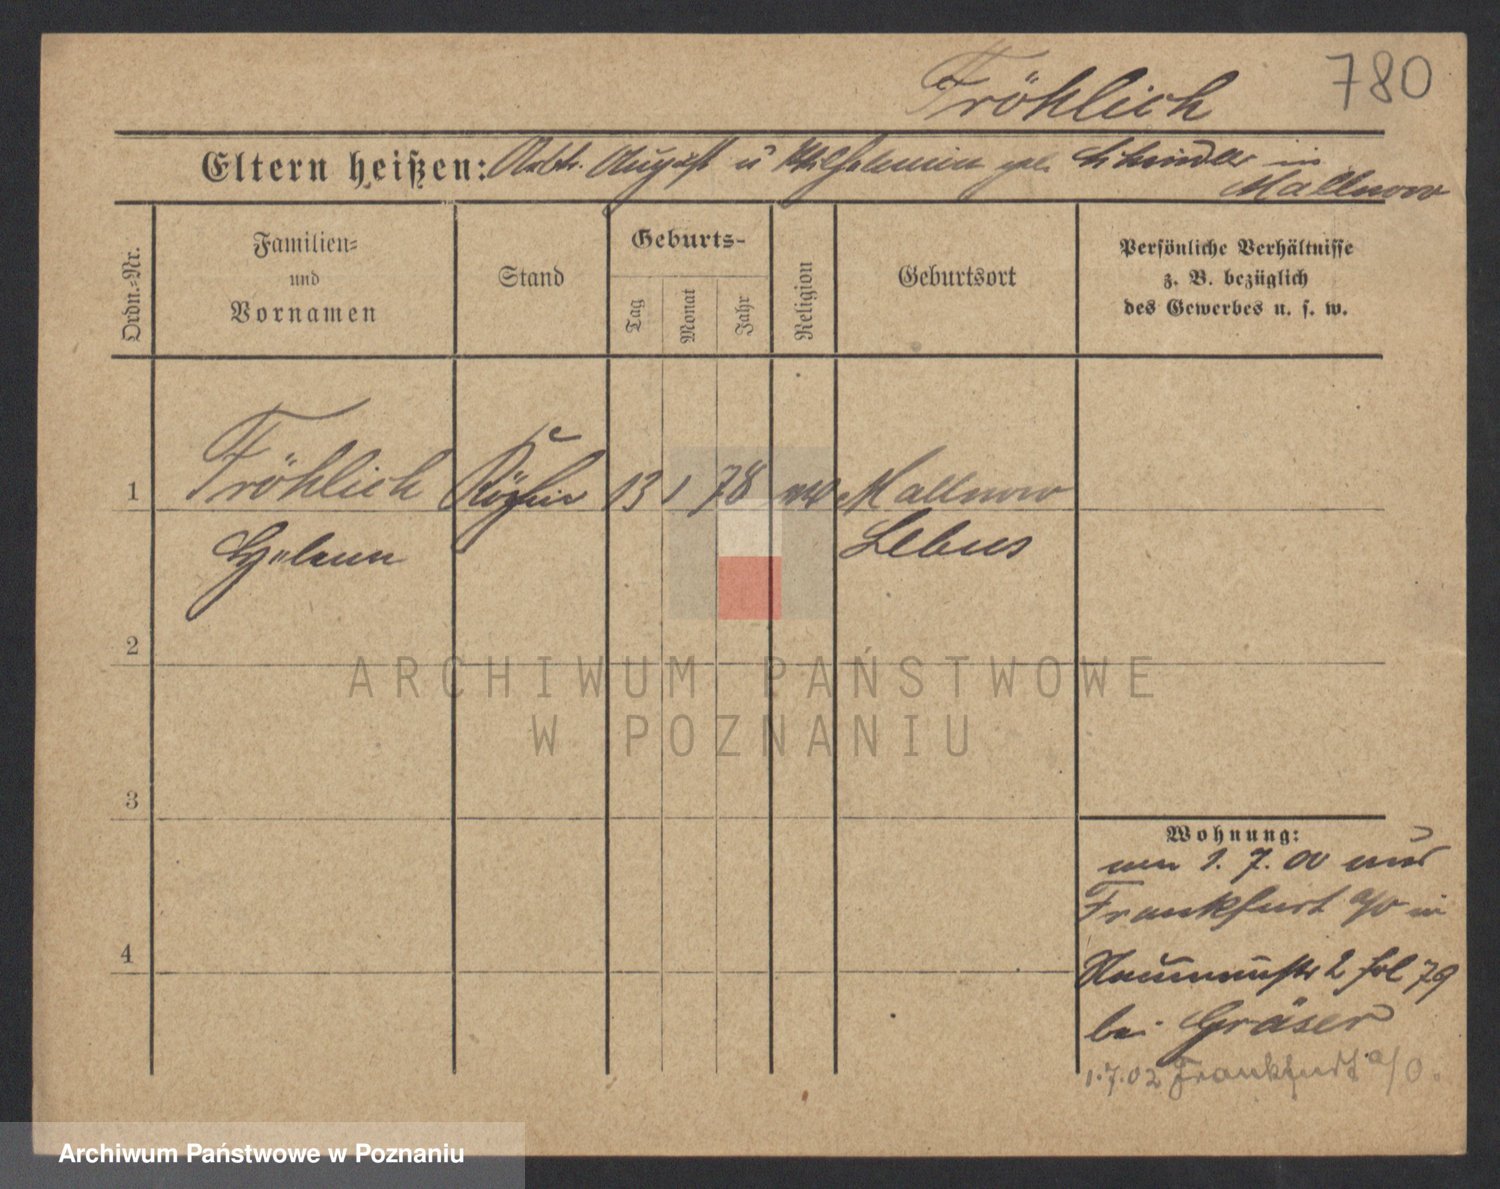 Fröhlich
780
Eltern heißen: Arbtr. August u Wilhelmine geb. in
Mallnow
Ordn.-Nr.
Familien-
und
Vornamen
Stand
Geburts-
Tag
Monat
Jahr
Religion
Geburtsort
Persönliche Verhältnisse
z. B. bezüglich
des Gewerbes u. s. w.
1
Fröhlich
Köchin
13
1
78
Mallnow
Helene
Lebus
2
ARCHIWUM PAŃSTWOWE
W POZNANIU
3
Wohnung:
1. 7. 00 aus
Frankfurt a/O in
4
Naumannstr 2 fol 79
bei Gräser
1.7.02 Frankfurt a/O.
Archiwum Państwowe w Poznaniu